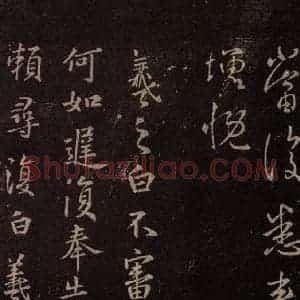 當復悉
增
羲之白不審
何如遲復奉
頼尋復白羲
Shufaziliao.COM